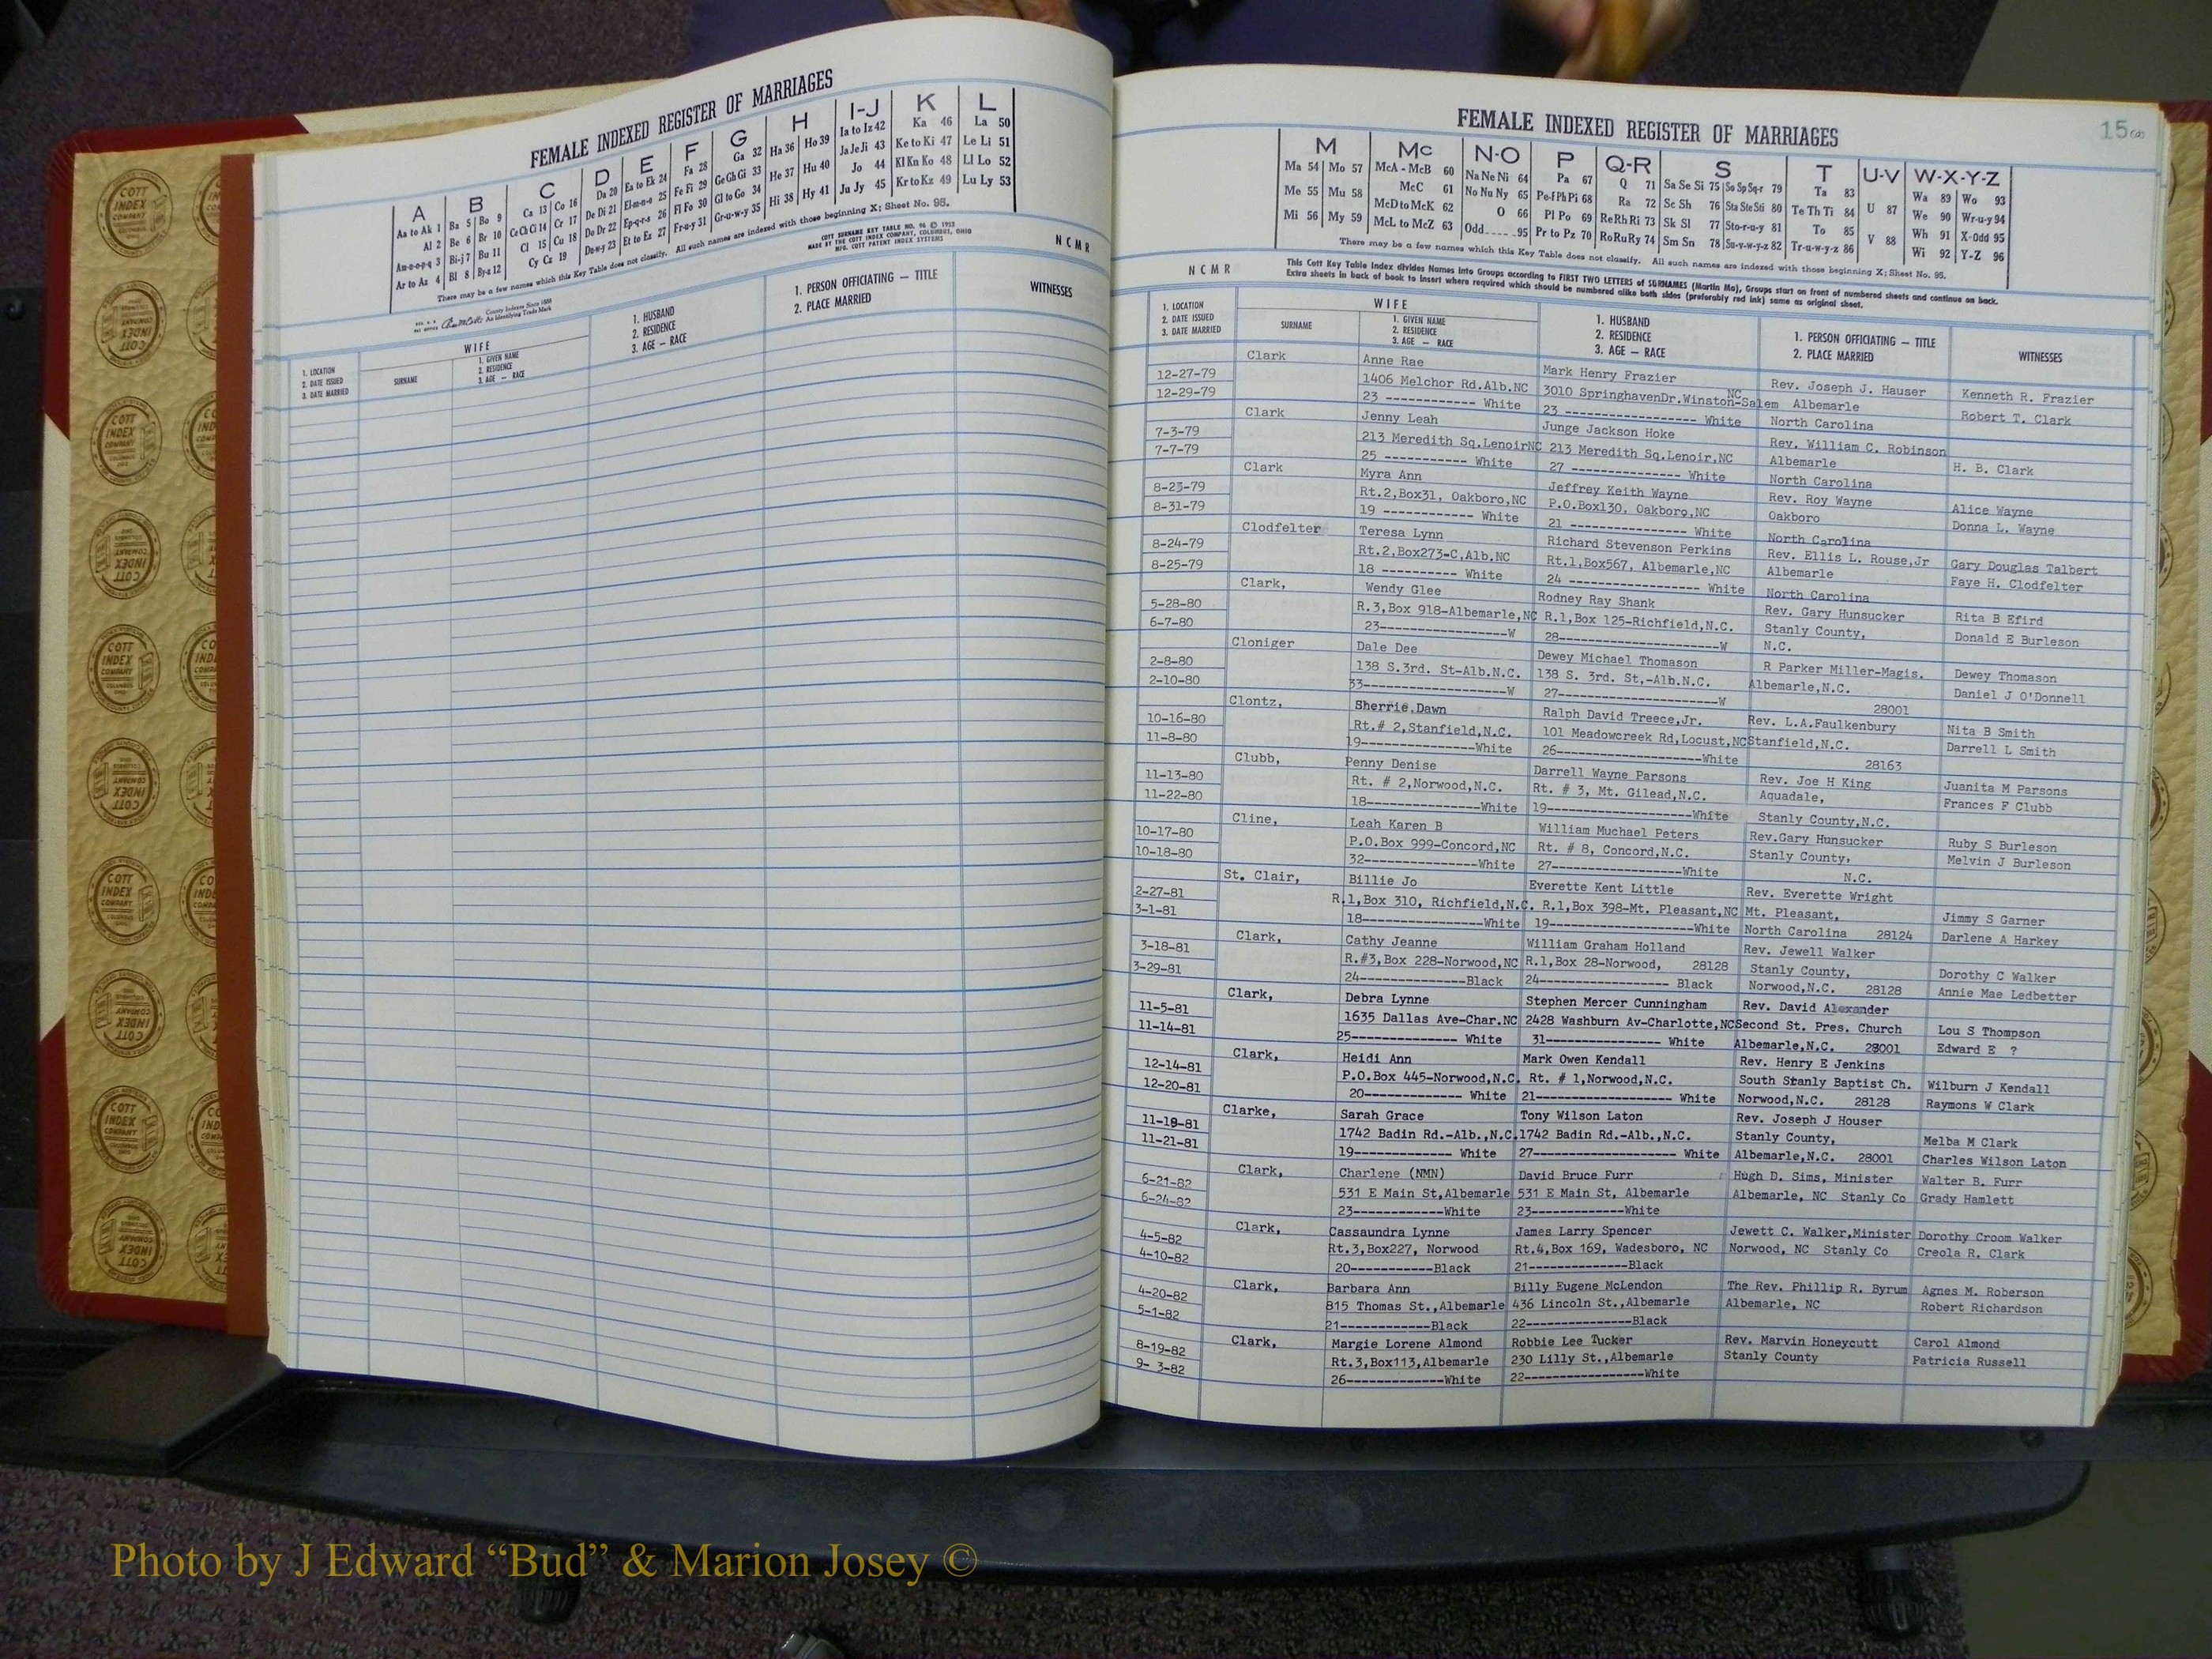 FEMALE INDEXED REGISTER OF MARRIAGES
A B C D E F G H I-J K L
Aa to Ak 1 Ba 5 Bo 9 Ca 13 Co 16 Da 20 Ea to Ek 24 Fa 28 Ga 32 Ha 36 Ho 39 Ia to Iz 42 Ka 46 La 50
Al 2 Be 6 Br 10 Ce Ch Ci 14 Cr 17 De Di 21 El-m-n-o 25 Fe Fi 29 Ge Gh Gi 33 He 37 Hu 40 Ja Je Ji 43 Ke to Ki 47 Le Li 51
Am-n-o-p-q 3 Bi-j 7 Bu 11 Cl 15 Cu 18 Do Dr 22 Ep-q-r-s 26 Fl Fo 30 Gl to Go 34 Hi 38 Hy 41 Jo 44 Kl Kn Ko 48 Ll Lo 52
Ar to Az 4 Bl 8 By-z 12 Cy Cz 19 Du-w-y 23 Et to Ez 27 Fr-u-y 31 Gr-u-w-y 35 Ju Jy 45 Kr to Kz 49 Lu Ly 53
There may be a few names which this Key Table does not classify. All such names are indexed with those beginning X; Sheet No. 95.
COTT SURNAME KEY TABLE NO. 96 © 1952
MADE BY THE COTT INDEX COMPANY, COLUMBUS, OHIO
MFG. COTT PATENT INDEX SYSTEMS
County Indexes Since 1888
An Identifying Trade Mark
N C M R
1. LOCATION
2. DATE ISSUED
3. DATE MARRIED
WIFE
SURNAME
1. GIVEN NAME
2. RESIDENCE
3. AGE — RACE
1. HUSBAND
2. RESIDENCE
3. AGE — RACE
1. PERSON OFFICIATING — TITLE
2. PLACE MARRIED
WITNESSES
COTT INDEX COMPANY
FEMALE INDEXED REGISTER OF MARRIAGES
15
M Mc N-O P Q-R S T U-V W-X-Y-Z
Ma 54 Mo 57 McA - McB 60 Na Ne Ni 64 Pa 67 Q 71 Sa Se Si 75 So Sp Sq-r 79 Ta 83 U 87 Wa 89 Wo 93
Me 55 Mu 58 McC 61 No Nu Ny 65 Pe-f Ph Pi 68 Ra 72 Sc Sh 76 Sta Ste Sti 80 Te Th Ti 84 V 88 We 90 Wr-u-y 94
Mi 56 My 59 McD to McK 62 O 66 Pl Po 69 Re Rh Ri 73 Sk Sl 77 Sto-r-u-y 81 To 85 Wh 91 X-Odd 95
McL to McZ 63 Odd 95 Pr to Pz 70 Ro Ru Ry 74 Sm Sn 78 Su-v-w-y-z 82 Tr-u-w-y-z 86 Wi 92 Y-Z 96
There may be a few names which this Key Table does not classify. All such names are indexed with those beginning X; Sheet No. 95.
This Cott Key Table Index divides Names into Groups according to FIRST TWO LETTERS of SURNAMES (Martin Ma), Groups start on front of numbered sheets and continue on back.
Extra sheets in back of book to insert where required which should be numbered alike both sides (preferably red ink) same as original sheet.
N C M R
1. LOCATION
2. DATE ISSUED
3. DATE MARRIED
WIFE
SURNAME
1. GIVEN NAME
2. RESIDENCE
3. AGE — RACE
1. HUSBAND
2. RESIDENCE
3. AGE — RACE
1. PERSON OFFICIATING — TITLE
2. PLACE MARRIED
WITNESSES
Clark Anne Rae Mark Henry Frazier Rev. Joseph J. Hauser Kenneth R. Frazier
12-27-79 1406 Melchor Rd.Alb.NC 3010 SpringhavenDr.Winston-Salem NC Albemarle Robert T. Clark
12-29-79 23 ------------ White 23 ---------------- White North Carolina
Clark Jenny Leah Junge Jackson Hoke Rev. William C. Robinson
7-3-79 213 Meredith Sq.LenoirNC 213 Meredith Sq.Lenoir,NC Albemarle H. B. Clark
7-7-79 25 ----------- White 27 -------------- White North Carolina
Clark Myra Ann Jeffrey Keith Wayne Rev. Roy Wayne Alice Wayne
8-23-79 Rt.2,Box31, Oakboro,NC P.O.Box130, Oakboro,NC Oakboro Donna L. Wayne
8-31-79 19 ------------ White 21 --------------- White North Carolina
Clodfelter Teresa Lynn Richard Stevenson Perkins Rev. Ellis L. Rouse,Jr Gary Douglas Talbert
8-24-79 Rt.2,Box273-C,Alb.NC Rt.1,Box567, Albemarle,NC Albemarle Faye H. Clodfelter
8-25-79 18 ---------- White 24 ----------------- White North Carolina
Clark, Wendy Glee Rodney Ray Shank Rev. Gary Hunsucker Rita B Efird
5-28-80 R.3,Box 918-Albemarle,NC R.1,Box 125-Richfield,N.C. Stanly County, Donald E Burleson
6-7-80 23----------------W 28------------------W N.C.
Cloniger Dale Dee Dewey Michael Thomason R Parker Miller-Magis. Dewey Thomason
2-8-80 138 S.3rd. St-Alb.N.C. 138 S. 3rd. St,-Alb.N.C. Albemarle,N.C. Daniel J O'Donnell
2-10-80 33-----------------W 27------------------W 28001
Clontz, Sherrie,Dawn Ralph David Treece,Jr. Rev. L.A.Faulkenbury Nita B Smith
10-16-80 Rt.# 2,Stanfield,N.C. 101 Meadowcreek Rd,Locust,NC Stanfield,N.C. Darrell L Smith
11-8-80 19---------------White 26-----------------White 28163
Clubb, Penny Denise Darrell Wayne Parsons Rev. Joe H King Juanita M Parsons
11-13-80 Rt. # 2,Norwood,N.C. Rt. # 3, Mt. Gilead,N.C. Aquadale, Frances F Clubb
11-22-80 18---------------White 19-----------------White Stanly County,N.C.
Cline, Leah Karen B William Muchael Peters Rev.Gary Hunsucker Ruby S Burleson
10-17-80 P.O.Box 999-Concord,NC Rt. # 8, Concord,N.C. Stanly County, Melvin J Burleson
10-18-80 32---------------White 27---------------White N.C.
St. Clair, Billie Jo Everette Kent Little Rev. Everette Wright
2-27-81 R.1,Box 310, Richfield,N.C. R.1,Box 398-Mt. Pleasant,NC Mt. Pleasant, Jimmy S Garner
3-1-81 18----------------White 19-----------------White North Carolina 28124 Darlene A Harkey
Clark, Cathy Jeanne William Graham Holland Rev. Jewell Walker
3-18-81 R.#3,Box 228-Norwood,NC R.1,Box 28-Norwood, 28128 Stanly County, Dorothy C Walker
3-29-81 24--------------Black 24----------------- Black Norwood,N.C. 28128 Annie Mae Ledbetter
Clark, Debra Lynne Stephen Mercer Cunningham Rev. David Alexander
11-5-81 1635 Dallas Ave-Char.NC 2428 Washburn Av-Charlotte,NC Second St. Pres. Church Lou S Thompson
11-14-81 25-------------- White 31----------------- White Albemarle,N.C. 28001 Edward E ?
Clark, Heidi Ann Mark Owen Kendall Rev. Henry E Jenkins
12-14-81 P.O.Box 445-Norwood,N.C. Rt. # 1,Norwood,N.C. South Stanly Baptist Ch. Wilburn J Kendall
12-20-81 20------------- White 21-------------------- White Norwood,N.C. 28128 Raymons W Clark
Clarke, Sarah Grace Tony Wilson Laton Rev. Joseph J Houser
11-19-81 1742 Badin Rd.-Alb.,N.C. 1742 Badin Rd.-Alb.,N.C. Stanly County, Melba M Clark
11-21-81 19------------- White 27-------------------- White Albemarle,N.C. 28001 Charles Wilson Laton
Clark, Charlene (NMN) David Bruce Furr Hugh D. Sims, Minister Walter B. Furr
6-21-82 531 E Main St,Albemarle 531 E Main St, Albemarle Albemarle, NC Stanly Co Grady Hamlett
6-24-82 23------------White 23-------------White
Clark, Cassaundra Lynne James Larry Spencer Jewett C. Walker,Minister Dorothy Croom Walker
4-5-82 Rt.3,Box227, Norwood Rt.4,Box 169, Wadesboro, NC Norwood, NC Stanly Co Creola R. Clark
4-10-82 20-----------Black 21--------------Black
Clark, Barbara Ann Billy Eugene McLendon The Rev. Phillip R. Byrum Agnes M. Roberson
4-20-82 815 Thomas St.,Albemarle 436 Lincoln St.,Albemarle Albemarle, NC Robert Richardson
5-1-82 21------------Black 22---------------Black
Clark, Margie Lorene Almond Robbie Lee Tucker Rev. Marvin Honeycutt Carol Almond
8-19-82 Rt.3,Box113,Albemarle 230 Lilly St.,Albemarle Stanly County Patricia Russell
9- 3-82 26-------------White 22-----------------White
Photo by J Edward “Bud” & Marion Josey ©